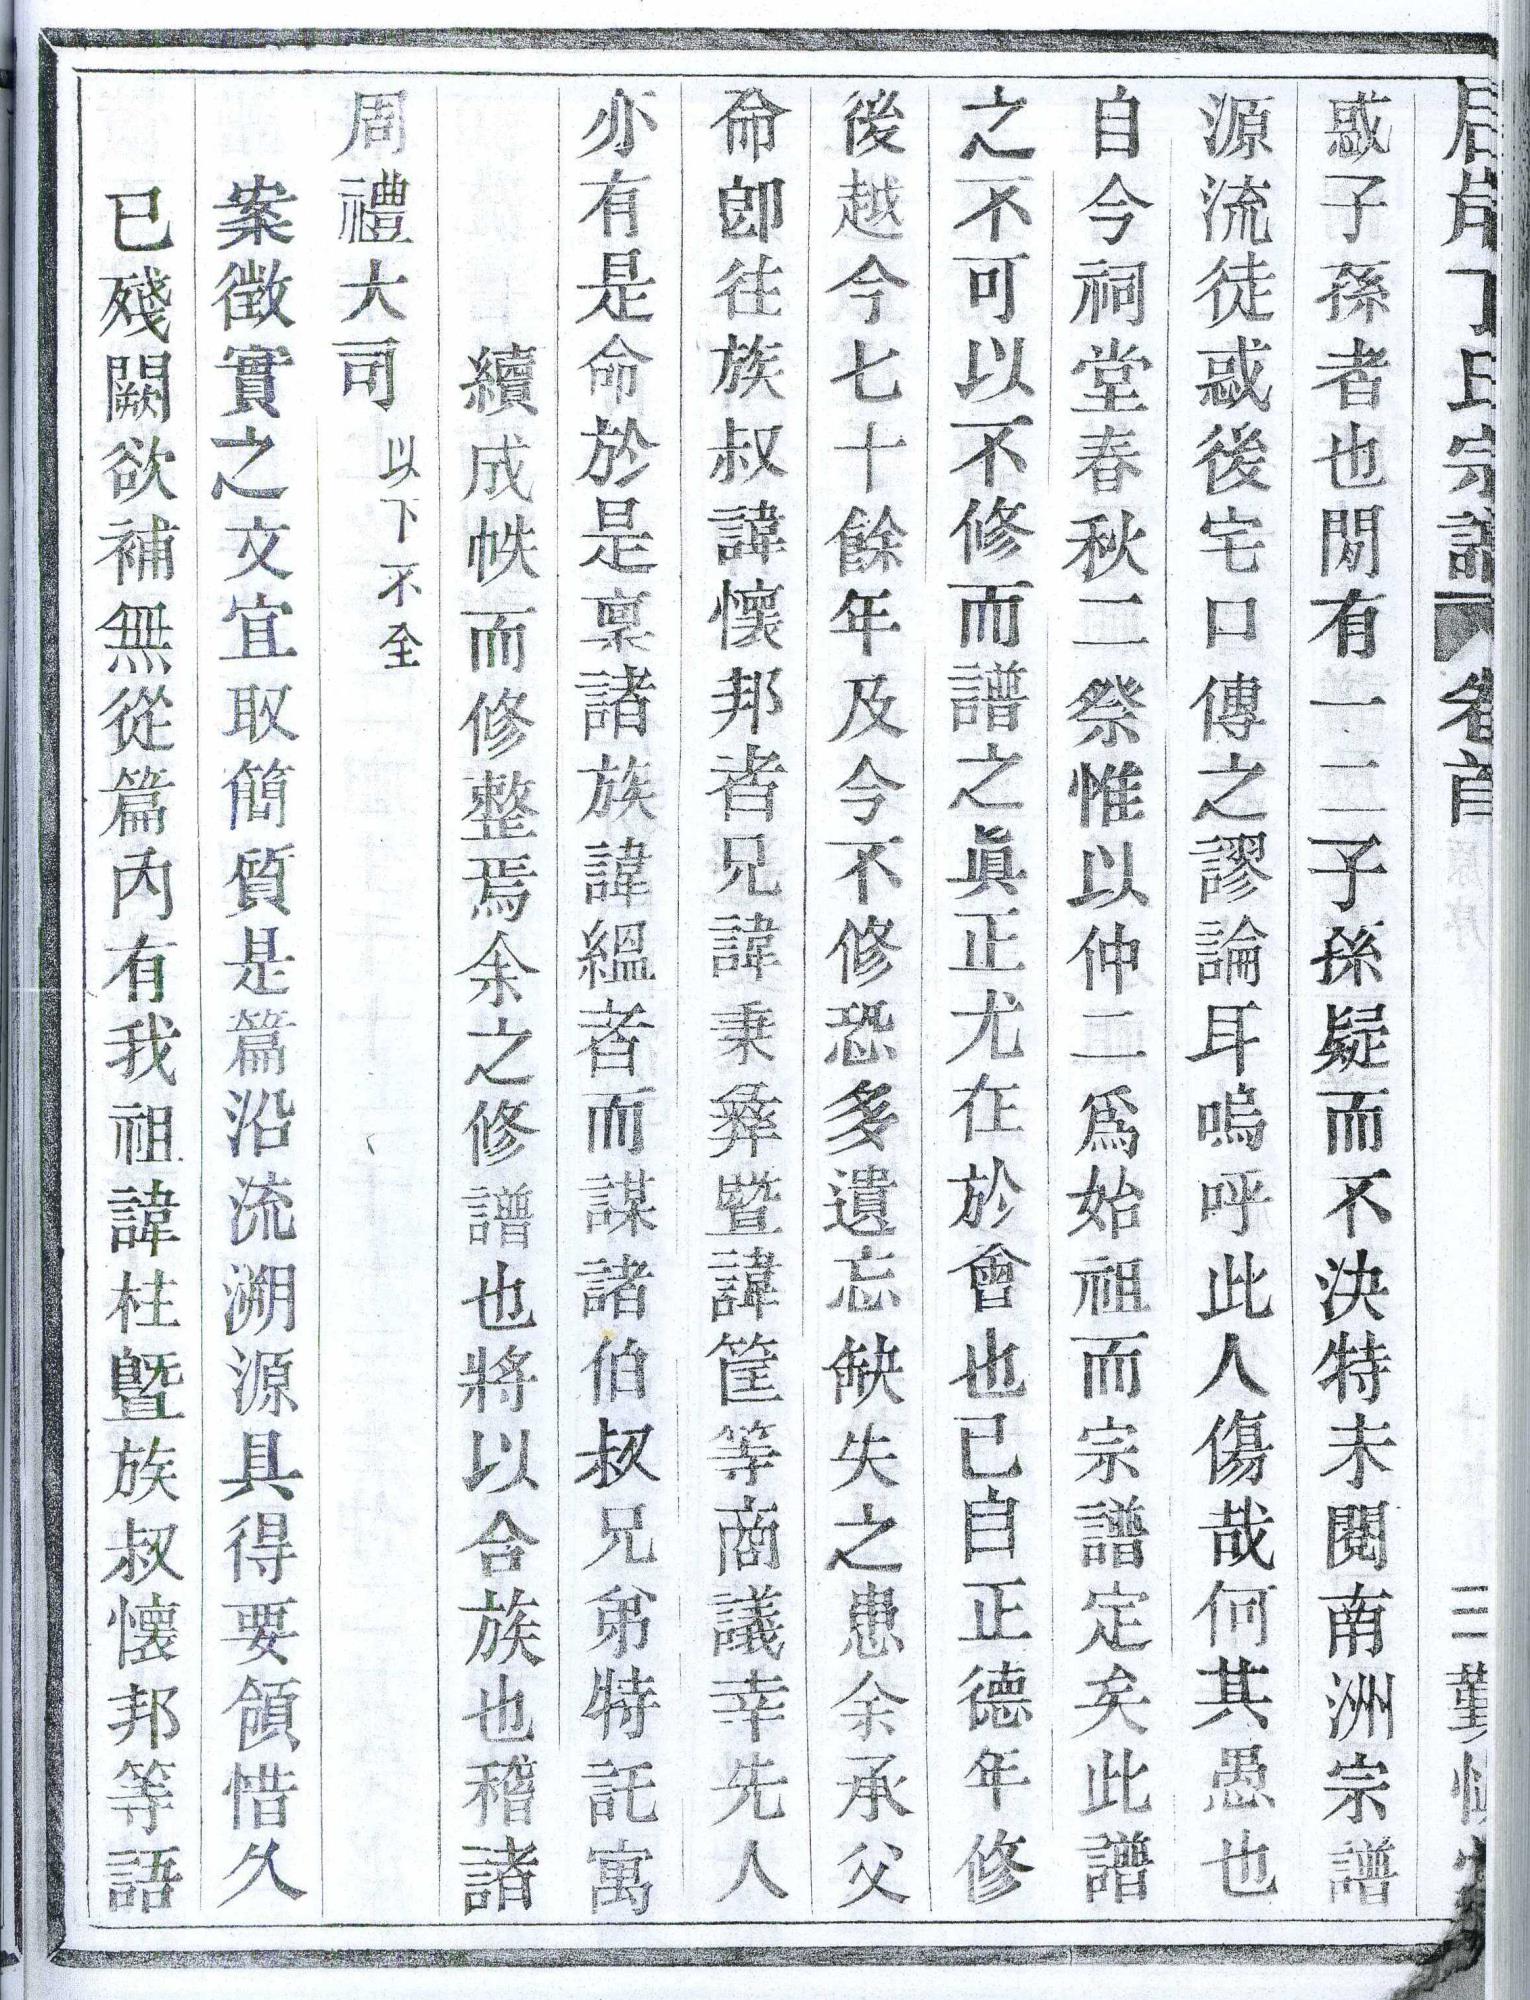 丁氏宗譜 卷首 三 勤慎堂
惑子孫者也閒有一二子孫疑而不決特未閱南洲宗譜
源流徒惑後宅口傳之謬論耳嗚呼此人傷哉何其愚也
自今祠堂春秋二祭惟以仲二爲始祖而宗譜定矣此譜
之不可以不修而譜之眞正尤在於會也已自正德年修
後越今七十餘年及今不修恐多遺忘缺失之患余承父
命卽往族叔諱懷邦者兄諱秉彝曁諱筐等商議幸先人
亦有是命於是稟諸族諱縕者而謀諸伯叔兄弟特託寓
續成帙而修整焉余之修譜也將以合族也稽諸
周禮大司 以下不全
案徵實之文宜取簡質是篇沿流溯源具得要領惜久
已殘闕欲補無從篇內有我祖諱柱曁族叔懷邦等語